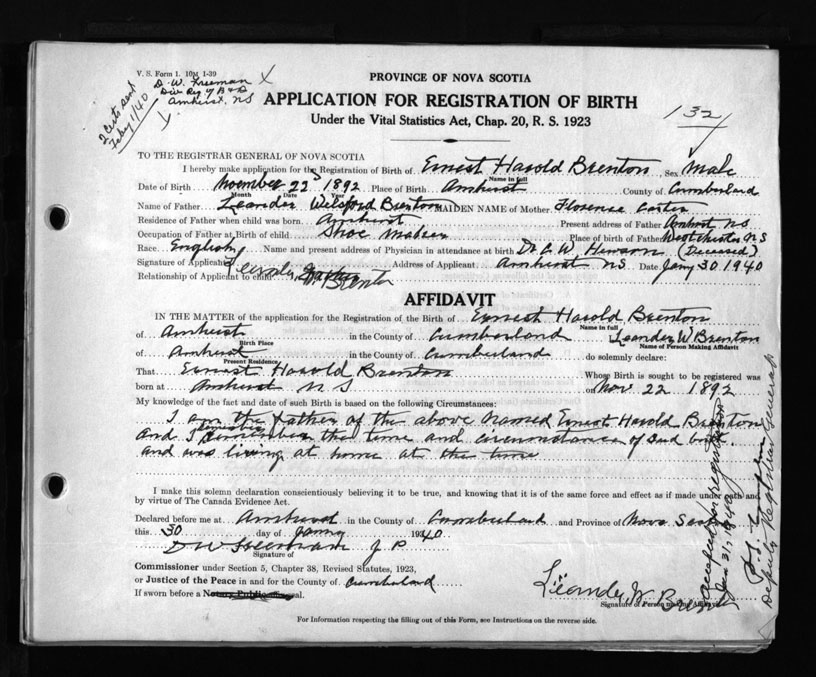 V. S. Form 1. 10M 1-39
D. W. Freeman X
Div Reg of B & D
Amherst, NS
2 Certs sent
Feby 1/40
PROVINCE OF NOVA SCOTIA
APPLICATION FOR REGISTRATION OF BIRTH
132
Under the Vital Statistics Act, Chap. 20, R. S. 1923
TO THE REGISTRAR GENERAL OF NOVA SCOTIA
I hereby make application for the Registration of Birth of Ernest Harold Brenton, Sex Male
Name in full
Date of Birth November 22 1892 Place of Birth Amherst County of Cumberland
Month Date Year
Name of Father Leander Welsford Brenton MAIDEN NAME of Mother Florence Carter
Residence of Father when child was born Amherst Present address of Father Amherst NS
Occupation of Father at Birth of child Shoe Maker Place of birth of Father Westchester NS
Race English Name and present address of Physician in attendance at birth Dr. C. W. Hewson (Deceased)
Signature of Applicant Leander W Brenton Address of Applicant Amherst NS Date Jany 30 1940
Relationship of Applicant to child Father
AFFIDAVIT
IN THE MATTER of the application for the Registration of the Birth of Ernest Harold Brenton
Name in full
of Amherst in the County of Cumberland Leander W Brenton
Birth Place Name of Person Making Affidavit
of Amherst in the County of Cumberland do solemnly declare:
Present Residence
That Ernest Harold Brenton Whose Birth is sought to be registered was
born at Amherst NS on Nov 22 1892
My knowledge of the fact and date of such Birth is based on the following Circumstances:
I am the father of the above named Ernest Harold Brenton
and I remember the time and circumstance of said birth
and was living at home at the time
I make this solemn declaration conscientiously believing it to be true, and knowing that it is of the same force and effect as if made under oath and
by virtue of The Canada Evidence Act.
Declared before me at Amherst in the County of Cumberland and Province of Nova Scotia
this 30 day of Jany 1940
D W Freeman J. P.
Signature of
Commissioner under Section 5, Chapter 38, Revised Statutes, 1923,
or Justice of the Peace in and for the County of Cumberland
If sworn before a Notary Public affix seal.
Leander W Brenton
Signature of Person making Affidavit
For Information respecting the filling out of this Form, see Instructions on the reverse side.
Accepted for registration
Jan 31, 1940
Deputy Registrar General